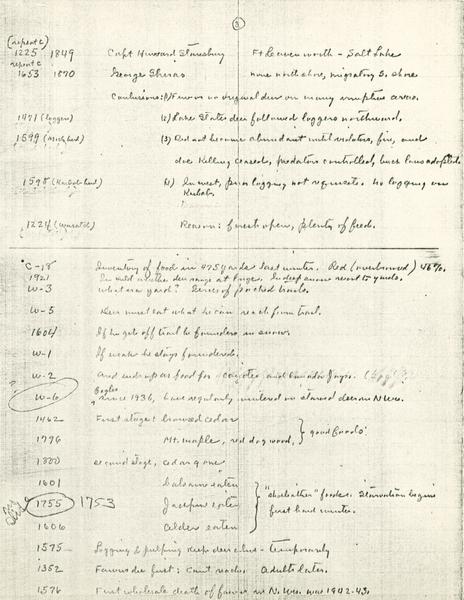 3
(repeat c)
1225 1849 Capt Howard Stansbury Ft Leavenworth - Salt Lake
repeat c
1653 1870 George Shiras none north shore, migrating S. shore
Conclusions: (1) Few or no original deer on many irruptive areas.
1471 (loggers) (2) Lake States deer followed loggers northward.
1599 (3) Did not become abundant until predators, fire, and
doe killing ceased, predators controlled, buck laws adopted.
1598 (4) In west, prior logging not requisite. No logging on
Kaibab.
1224 (Wasatch) Reason: forest open, plenty of feed.
C-18 Inventory of food in 475 yards last winter. Red (overbrowsed) 46%.
1921 In mild weather deer range at large. In deep snow resort to yards.
W-3 What is a yard? Series of packed trails.
W-5 Deer must eat what he can reach from trail.
1604 If he gets off trail he founders in snow.
W-1 If weak he stays foundered.
W-2 And ends up as food for coyotes and Canada Jays.
W-6 Eagles since 1936, have regularly wintered on starved deer in N Wis.
1462 First stage: browsed cedar
1776 Mt. maple, red dogwood, } good foods
1800 second stage, cedar gone
1601 balsam eaten
1755 1753 Jackpine eaten } foods. Starvation begins
first hard winter.
1606 Alder eaten
1575 Logging & pulping keeps deer alive - temporarily
1352 Fawns die first: can't reach. Adults later.
1576 First wholesale death of fawns in N. Wis. was 1942-43.